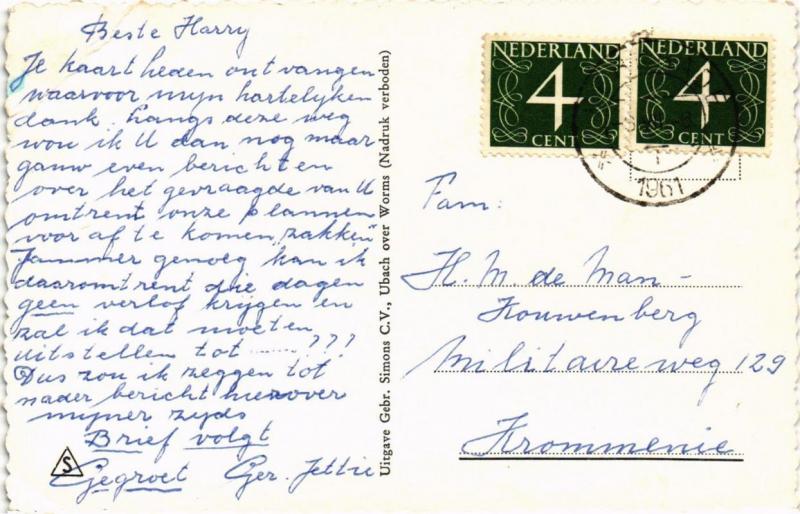 Beste Harry
Je kaart heden ontvangen
waarvoor mijn hartelijken
dank. Langs deze weg
wou ik U dan nog maar
gauw even berichten
over het gevraagde van U
omtrent onze plannen
voor af te komen "zakken"
Jammer genoeg kan ik
daaromtrent die dagen
geen verlof krijgen en
zal ik dat moeten
uitstellen tot ........???
Dus zou ik zeggen tot
nader bericht hierover
mijner zyds
Brief volgt
Gegroet Ger. Jettie
S
Uitgave Gebr. Simons C.V., Ubach over Worms (Nadruk verboden)
NEDERLAND
4
CENT
NEDERLAND
4
CENT
1961
Fam:
H. M. de Man-
Kouwenberg
Militaireweg 129
Krommenie